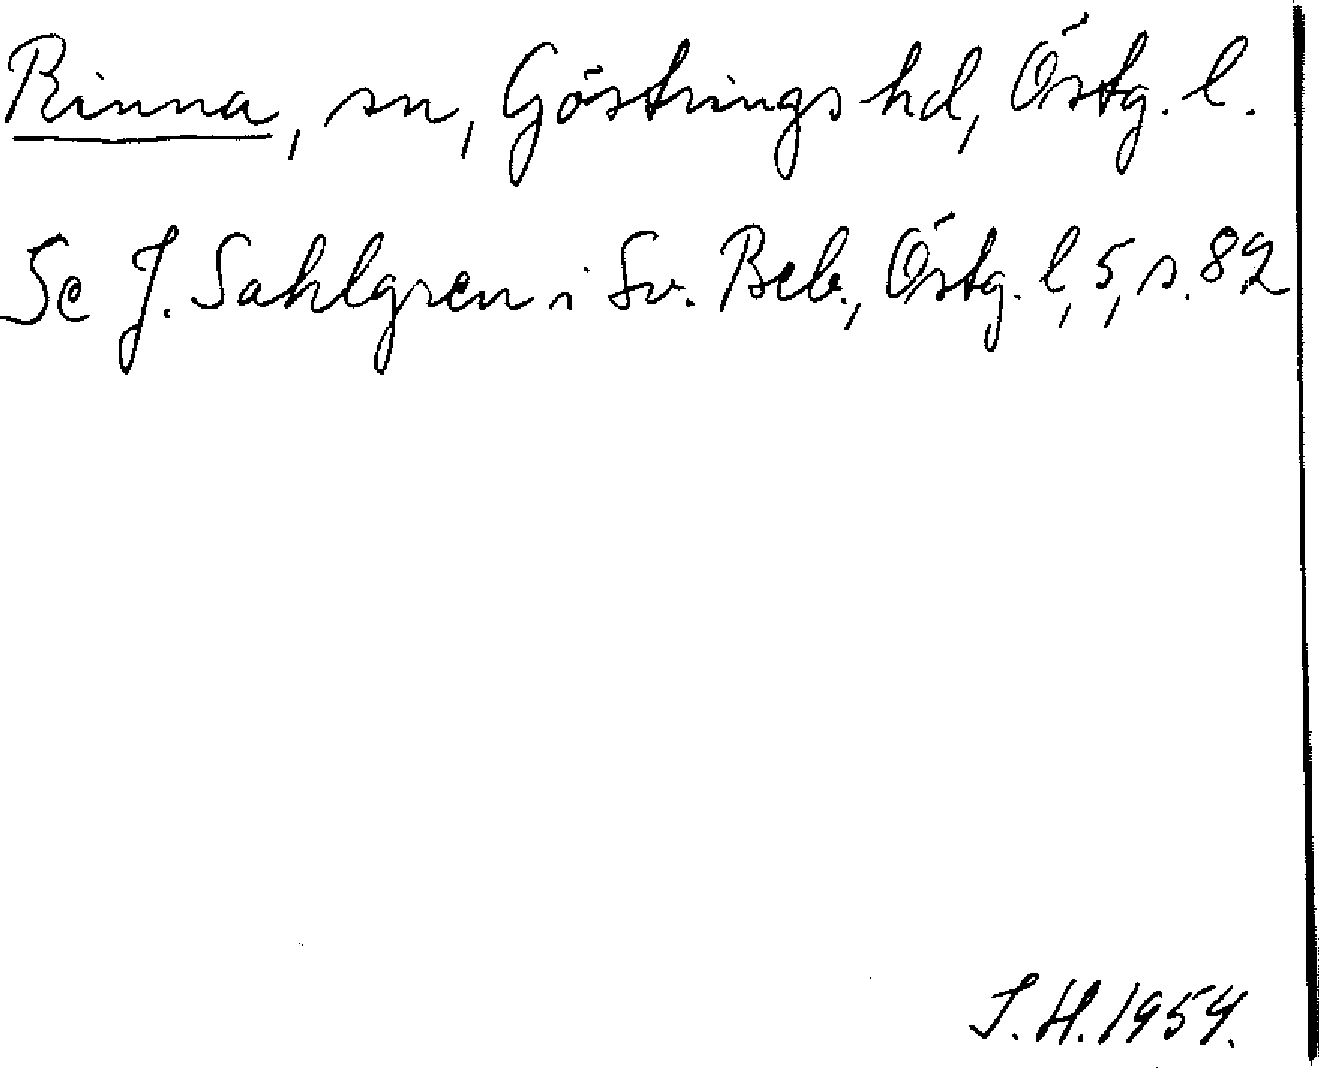 Rinna, sn, Göstrings hd, Östg. l.
Se J. Sahlgren i Sv. Beb., Östg. l, 5, s. 82
S. H. 1954.